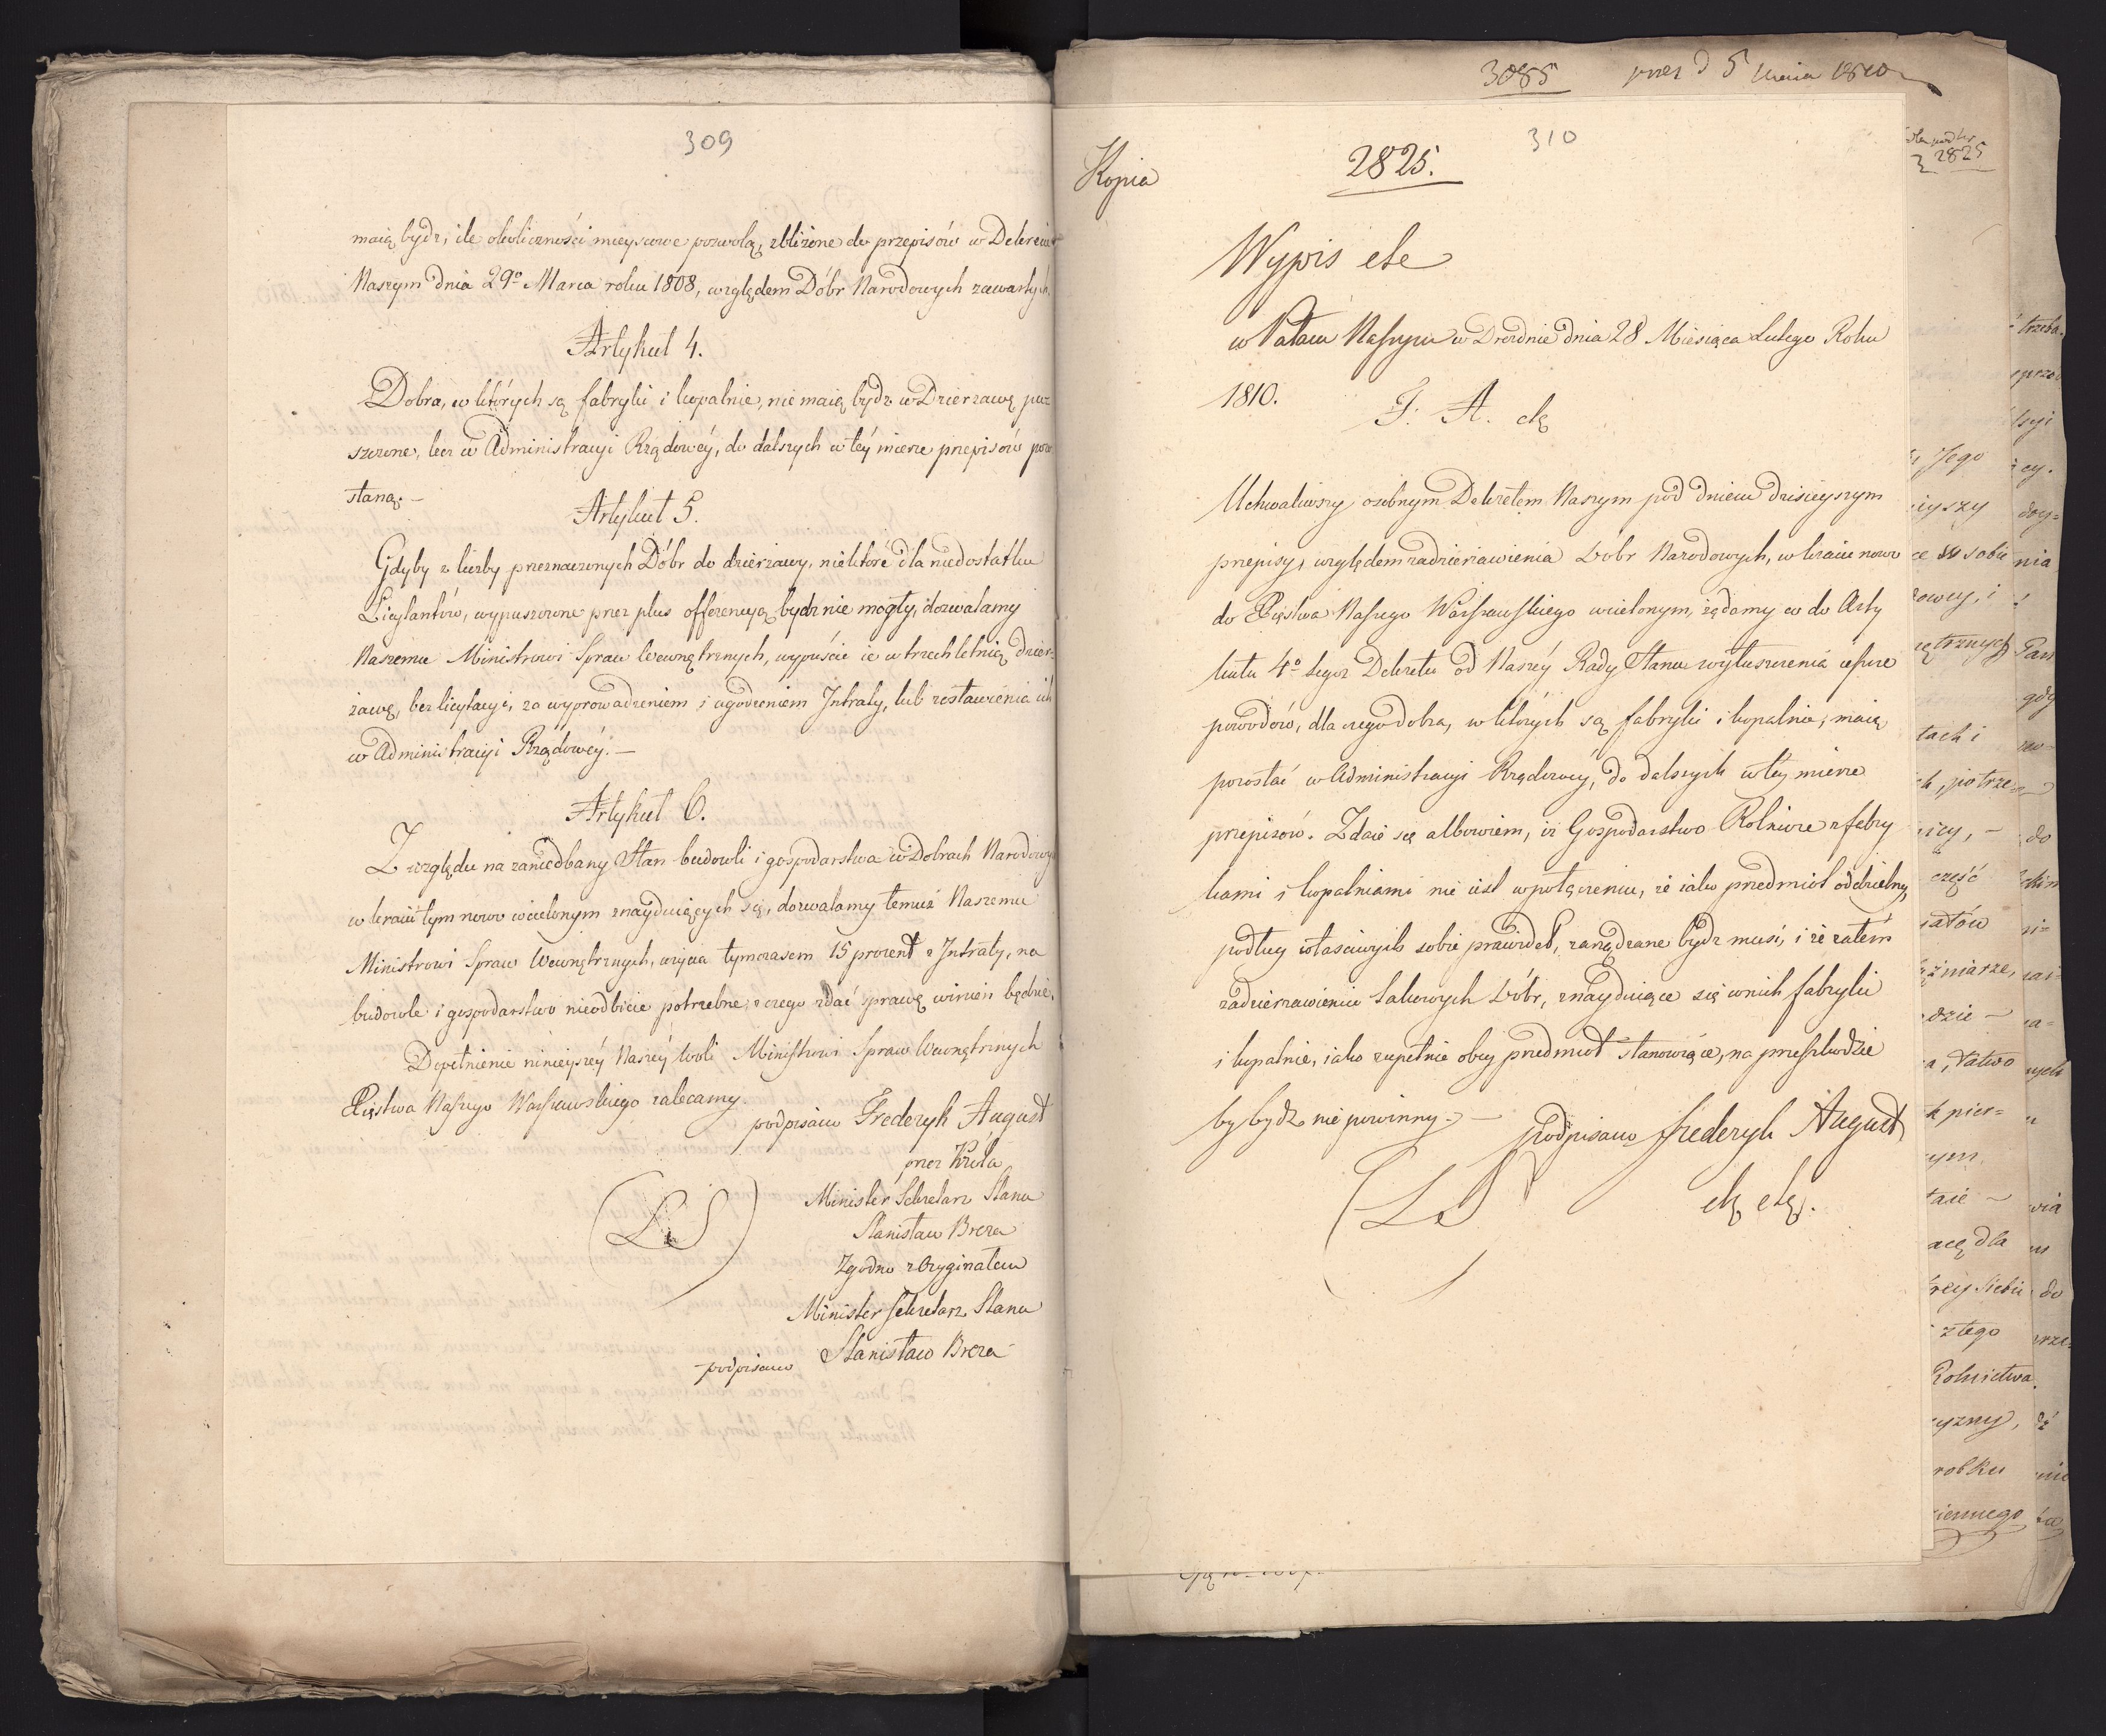 309
maią bydź, ile okoliczności mieyscowe pozwolą, zbliżone do przepisów w Dekrecie
Naszym dnia 29º Marca roku 1808, względem Dóbr Narodowych zawartych.
Artykuł 4.
Dobra, w których są fabryki i kopalnie, nie maią bydź w Dzierzawę pu=
szczone, lecz w Administracyi Rządowéy, do dalszych w téy mierze przepisów pozo
staną. —
Artykuł 5.
Gdyby z liczby przeznaczonych Dóbr do dzierzawy, niektóre dla niedostatku
Licytantów, wypuszczone przez plus offerencyą bydź nie mogły, dozwalamy
Naszemu Ministrowi Spraw Wewnętrznych, wypuścić ie w trzechletnią dzier=
zawę, bez licytacyi, za wyprowadzeniem i ugodzeniem Intraty, lub zostawienia ich
w Administracyi Rządowéy. —
Artykuł 6.
Z względu na zaniedbany Stan budowli i gospodarstwa w Dobrach Narodowych
w kraiu tym nowo wcielonym znayduiących się, dozwalamy temuż Naszemu
Ministrowi Spraw Wewnętrznych, użycia tymczasem 15 procent z Intraty, na
budowle i gospodarstwo nieodbicie potrzebne, z czego zdać sprawę winien będzie.
Dopełnienie ninieyszéy Naszéy Woli Ministrowi Spraw Wewnętrznych
Xięstwa Naszego Warszawskiego zalecamy.
podpisano Frederyk August
przez Króla
Minister Sekretarz Stanu
(LS)
Stanisław Breza
Zgodno z Oryginałem
Minister Sekretarz Stanu
podpisano Stanisław Breza
3085 5 Maia 1810
310
Kopia
2825.
Wypis etc
w Pałacu Naszym w Dreźnie dnia 28 Miesiąca Lutego Roku
1810.
F. A. etc
Uchwaliwszy osobnym Dekretem Naszym pod dniem dzisieyszym
przepisy, względem zadzierzawienia Dóbr Narodowych, w kraiu nowo
do Xięstwa Naszego Warszawskiego wcielonym, żądamy co do Arty
kułu 4º tegoż Dekretu od Naszéy Rady Stanu wyłuszczenia ieszcze
powodów, dla czego dobra, w których są fabryki i kopalnie, maią
pozostać w Administracyi Rządowéy, do dalszych w téy mierze
przepisów. Zdaie się albowiem, iż Gospodarstwo Rolnicze z fabry
kami i kopalniami nie iest w połączeniu, że iako przedmiot oddzielny,
podług właściwych sobie prawideł, zarządzane bydź musi, i że zatém
zadzierzawieniu takowych Dóbr, znayduiące się w nich fabryki
i kopalnie, iako zupełnie obcy przedmiot stanowiące, na przeszkodzie
by bydź nie powinny. —
podpisano Frederyk August
(LS)
etc etc.
2825
trzeba.
Jego
ieyszy
ce w sobie
nia
owey, i
ętrznych
Pan
gdy
tach i
h, potrze
icy, —
do
część
iatów
dzie —
a, łatwo
k pier=
ym
taie —
acę dla
do
z tego
Rolnictwa.
yzny,
robku
iennego